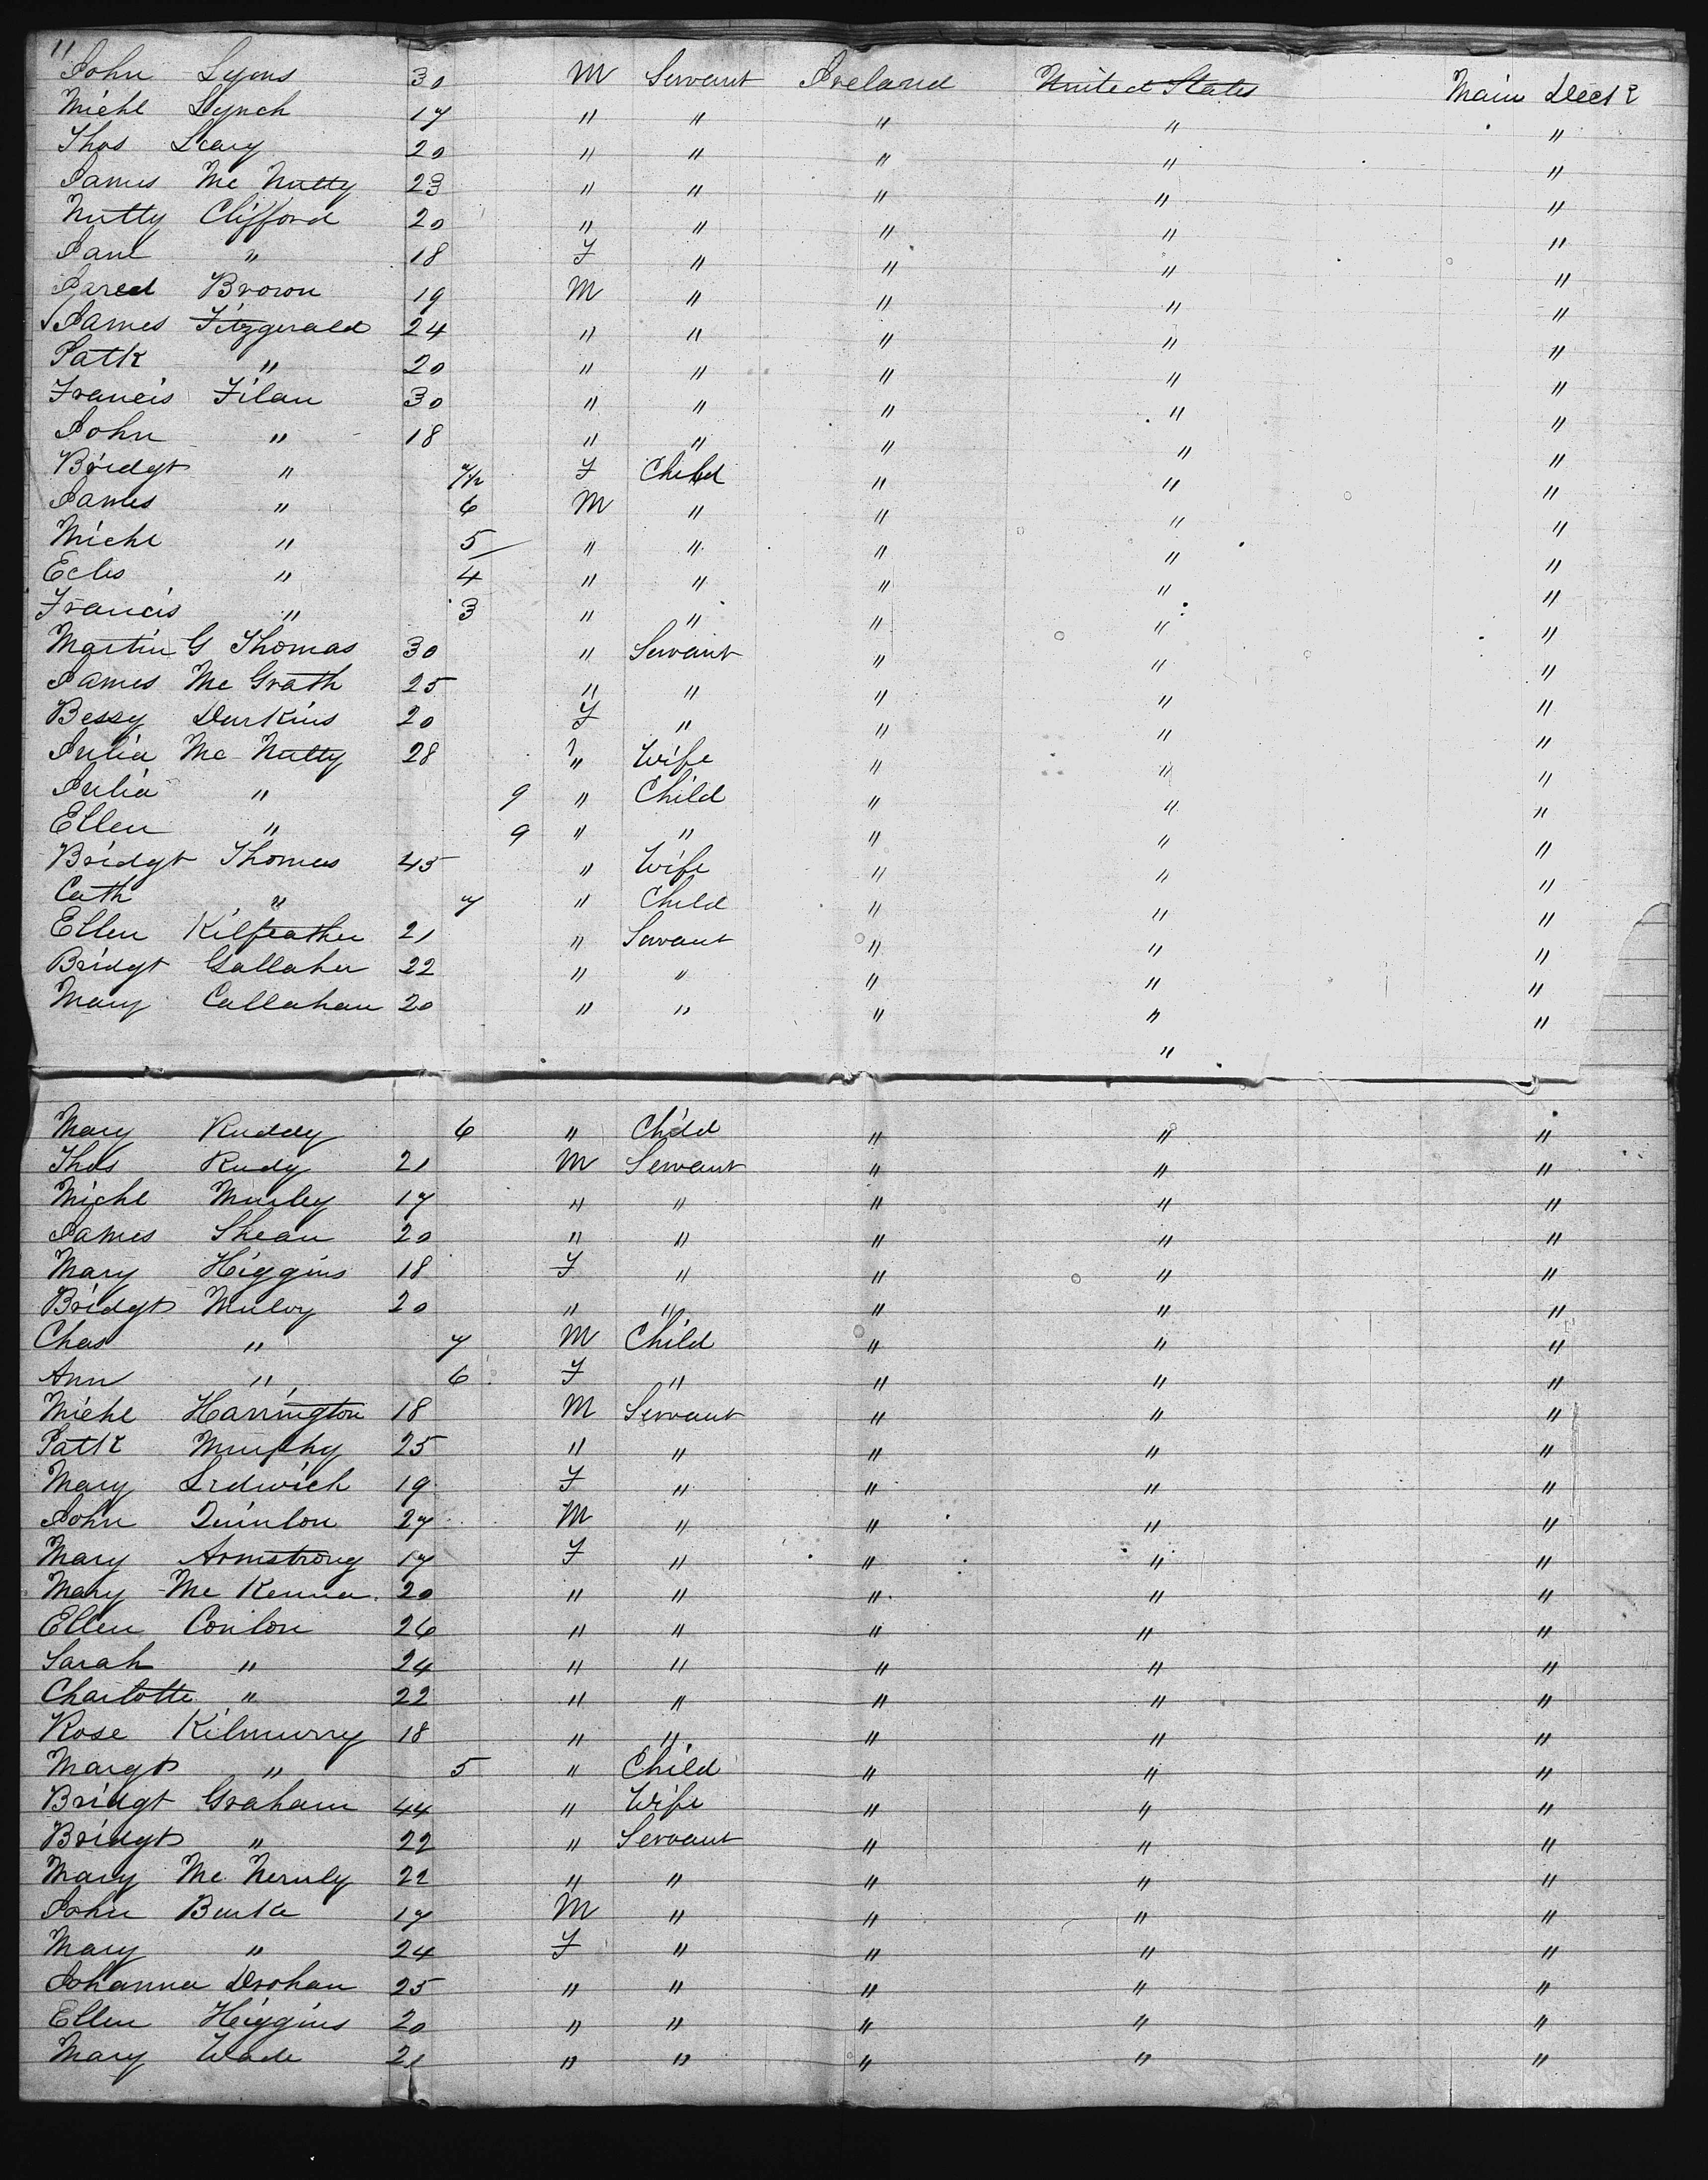 11
John Lyons 30 M Servant Ireland United States Main Deck
Michl Lynch 17 " " " " "
Thos Leary 20 " " " " "
James Mc Nulty 23 " " " " "
Nutty Clifford 20 " " " " "
Jane " 18 F " " " "
Jared Brown 19 M " " " "
James Fitzgerald 24 " " " " "
Patk " 20 " " " " "
Francis Filan 30 " " " " "
John " 18 " " " " "
Bridgt " F Child " " "
James " 6 M " " " "
Michl " 5 " " " " "
" 4 " " " " "
Francis " 3 " " " " "
Martin G Thomas 30 " Servant " " "
James Mc Grath 25 " " " " "
Bessy Durkins 20 F " " " "
Julia Mc Nulty 28 " Wife " " "
Julia " 9 " Child " " "
Ellen " 9 " " " " "
Bridgt Thomas 45 " Wife " " "
Cath " 7 " Child " " "
Ellen Kilfeather 21 " Servant " " "
Bridgt Gallaher 22 " " " " "
Mary Callahan 20 " " " " "
"
Mary Ruddy 6 " Child " " "
Thos Rudy 21 M Servant " " "
Michl Murley 17 " " " " "
James Skean 20 " " " " "
Mary Higgins 18 F " " " "
Bridgt Mulvy 20 " " " " "
Chas " 7 M Child " " "
Ann " 6 F " " " "
Michl Harrington 18 M Servant " " "
Patk Murphy 25 " " " " "
Mary 19 F " " " "
John Quinlon 27 M " " " "
Mary Armstrong 17 F " " " "
Mary Mc Kenna 20 " " " " "
Ellen Conlon 26 " " " " "
Sarah " 24 " " " " "
Charlotte " 22 " " " " "
Rose Kilmurry 18 " " " " "
Margt " 5 " Child " " "
Bridgt Graham 44 " Wife " " "
Bridgt " 22 " Servant " " "
Mary Mc 22 " " " " "
John Burke 17 M " " " "
Mary " 24 F " " " "
Johanna Drohan 25 " " " " "
Ellen Higgins 20 " " " " "
Mary Wade 21 " " " " "